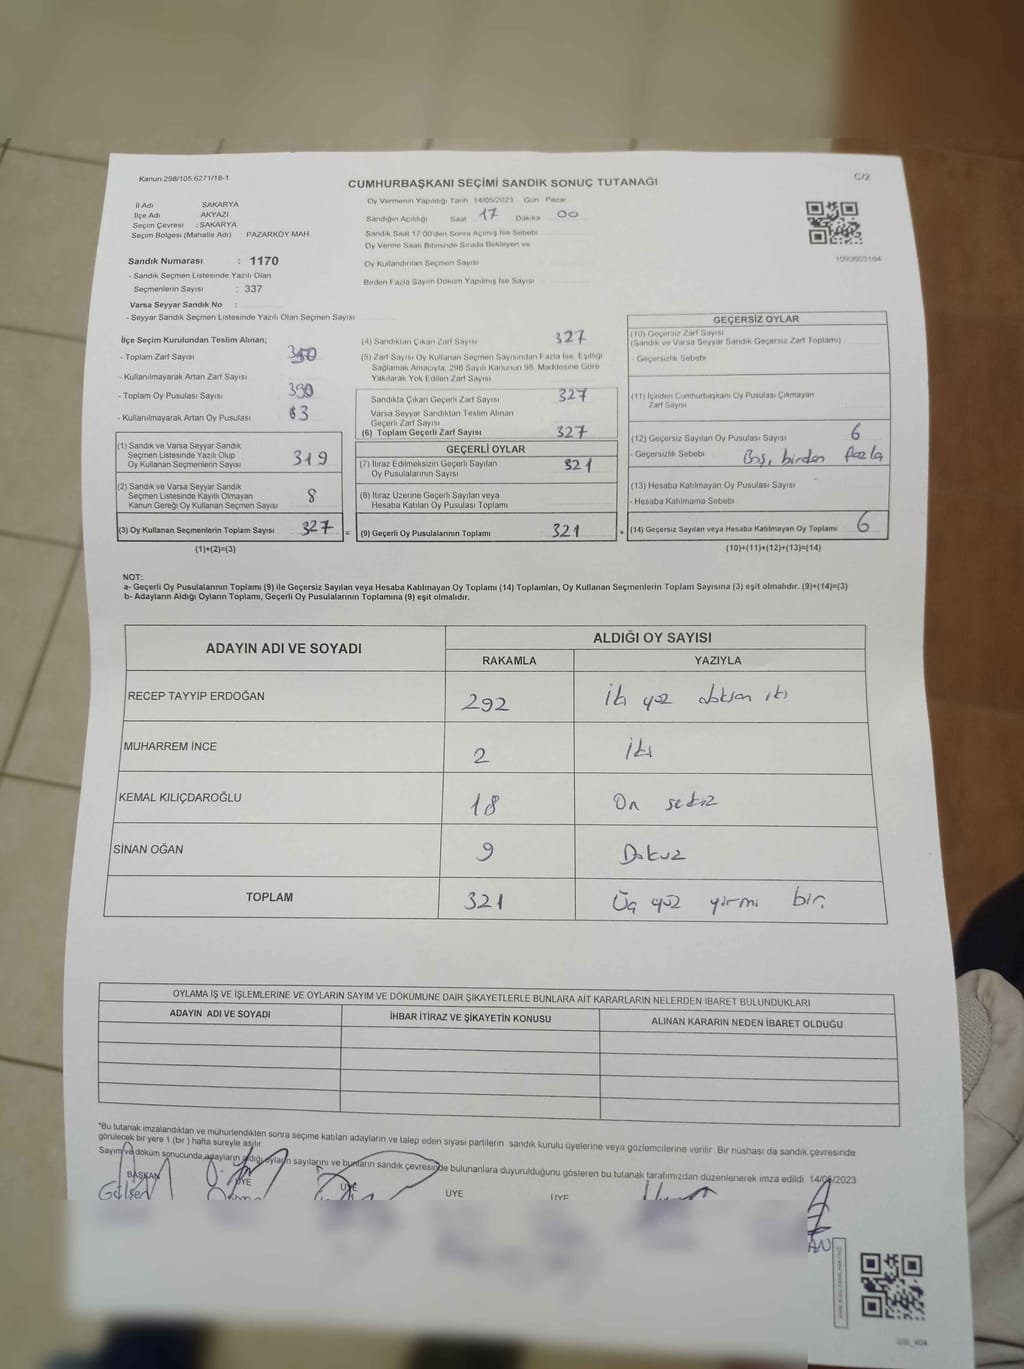 Kanun:298/105:6271/18-1
C/2
CUMHURBAŞKANI SEÇİMİ SANDIK SONUÇ TUTANAĞI
İl Adı SAKARYA
İlçe Adı AKYAZI
Seçim Çevresi : SAKARYA
Seçim Bölgesi (Mahalle Adı) : PAZARKÖY MAH.
Oy Vermenin Yapıldığı Tarih 14/05/2023 Gün Pazar
Sandığın Açıldığı Saat 17 Dakika 00
Sandık Saat 17 00'den Sonra Açılmış İse Sebebi
Oy Verme Saati Bitiminde Sırada Bekleyen ve
Oy Kullandırılan Seçmen Sayısı
Birden Fazla Sayım Döküm Yapılmış İse Sayısı
1093603164
Sandık Numarası : 1170
- Sandık Seçmen Listesinde Yazılı Olan
Seçmenlerin Sayısı : 337
Varsa Seyyar Sandık No :
- Seyyar Sandık Seçmen Listesinde Yazılı Olan Seçmen Sayısı
İlçe Seçim Kurulundan Teslim Alınan;
- Toplam Zarf Sayısı
- Kullanılmayarak Artan Zarf Sayısı
- Toplam Oy Pusulası Sayısı
- Kullanılmayarak Artan Oy Pusulası
(1) Sandık ve Varsa Seyyar Sandık
Seçmen Listesinde Yazılı Olup
Oy Kullanan Seçmenlerin Sayısı 319
(2) Sandık ve Varsa Seyyar Sandık
Seçmen Listesinde Kayıtlı Olmayan
Kanun Gereği Oy Kullanan Seçmen Sayısı 8
(3) Oy Kullanan Seçmenlerin Toplam Sayısı : 327 =
(1)+(2)=(3)
(4) Sandıktan Çıkan Zarf Sayısı 327
(5) Zarf Sayısı Oy Kullanan Seçmen Sayısından Fazla İse, Eşitliği
Sağlamak Amacıyla, 298 Sayılı Kanunun 98. Maddesine Göre
Yakılarak Yok Edilen Zarf Sayısı
Sandıkta Çıkan Geçerli Zarf Sayısı 327
Varsa Seyyar Sandıktan Teslim Alınan
Geçerli Zarf Sayısı
(6) Toplam Geçerli Zarf Sayısı 327
GEÇERLİ OYLAR
(7) İtiraz Edilmeksizin Geçerli Sayılan
Oy Pusulası Sayısı 321
(8) İtiraz Üzerine Geçerli Sayılan veya
Hesaba Katılan Oy Pusulası Toplamı
(9) Geçerli Oy Pusulalarının Toplamı 321 +
GEÇERSİZ OYLAR
(10) Geçersiz Zarf Sayısı
(Sandık ve Varsa Seyyar Sandık Geçersiz Zarf Toplamı)
- Geçersizlik Sebebi
(11) İçinden Cumhurbaşkanı Oy Pusulası Çıkmayan
Zarf Sayısı
(12) Geçersiz Sayılan Oy Pusulası Sayısı 6
- Geçersizlik Sebebi Boş, birden fazla
(13) Hesaba Katılmayan Oy Pusulası Sayısı
- Hesaba Katılmama Sebebi
(14) Geçersiz Sayılan veya Hesaba Katılmayan Oy Toplamı 6
(10)+(11)+(12)+(13)=(14)
NOT:
a- Geçerli Oy Pusulalarının Toplamı (9) ile Geçersiz Sayılan veya Hesaba Katılmayan Oy Toplamı (14) Toplamları, Oy Kullanan Seçmenlerin Toplam Sayısına (3) eşit olmalıdır. (9)+(14)=(3)
b- Adayların Aldığı Oyların Toplamı, Geçerli Oy Pusulalarının Toplamına (9) eşit olmalıdır.
ADAYIN ADI VE SOYADI ALDIĞI OY SAYISI
RAKAMLA YAZIYLA
RECEP TAYYİP ERDOĞAN 292 İki yüz doksan iki
MUHARREM İNCE 2 İki
KEMAL KILIÇDAROĞLU 18 On sekiz
SİNAN OĞAN 9 Dokuz
TOPLAM 321 Üç yüz yirmi bir
OYLAMA İŞ VE İŞLEMLERİNE VE OYLARIN SAYIM VE DÖKÜMÜNE DAİR ŞİKAYETLERLE BUNLARA AİT KARARLARIN NELERDEN İBARET BULUNDUKLARI
ADAYIN ADI VE SOYADI İHBAR İTİRAZ VE ŞİKAYETİN KONUSU ALINAN KARARIN NEDEN İBARET OLDUĞU
*Bu tutanak imzalandıktan ve mühürlendikten sonra seçime katılan adayların ve talep eden siyasi partilerin sandık kurulu üyelerine veya gözlemcilerine verilir. Bir nüshası da sandık çevresinde
görülecek bir yere 1 (bir) hafta süreyle asılır.
Sayım ve döküm sonucunda adayların aldığı oyların sayılarını ve bunların sandık çevresinde bulunanlara duyurulduğunu gösteren bu tutanak tarafımızdan düzenlenerek imza edildi. 14/05/2023
BAŞKAN ÜYE ÜYE ÜYE ÜYE